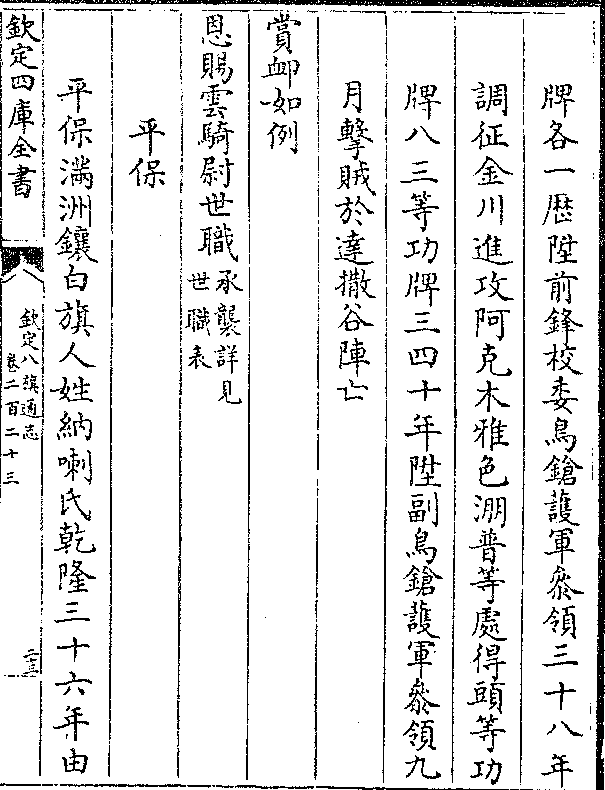 牌各一歴陞前鋒校委鳥鎗護軍叅領三十八年
調征金川進攻阿克木雅色淜普等處得頭等功
牌八三等功牌三四十年陞副鳥鎗護軍叅領九
月擊賊於達撒谷陣亡
賞卹如例
恩賜雲騎尉世職承襲詳見
世職表
平保
平保滿洲鑲白旗人姓納喇氏乾隆三十六年由
欽定四庫全書
欽定八旗通志
卷二百二十三